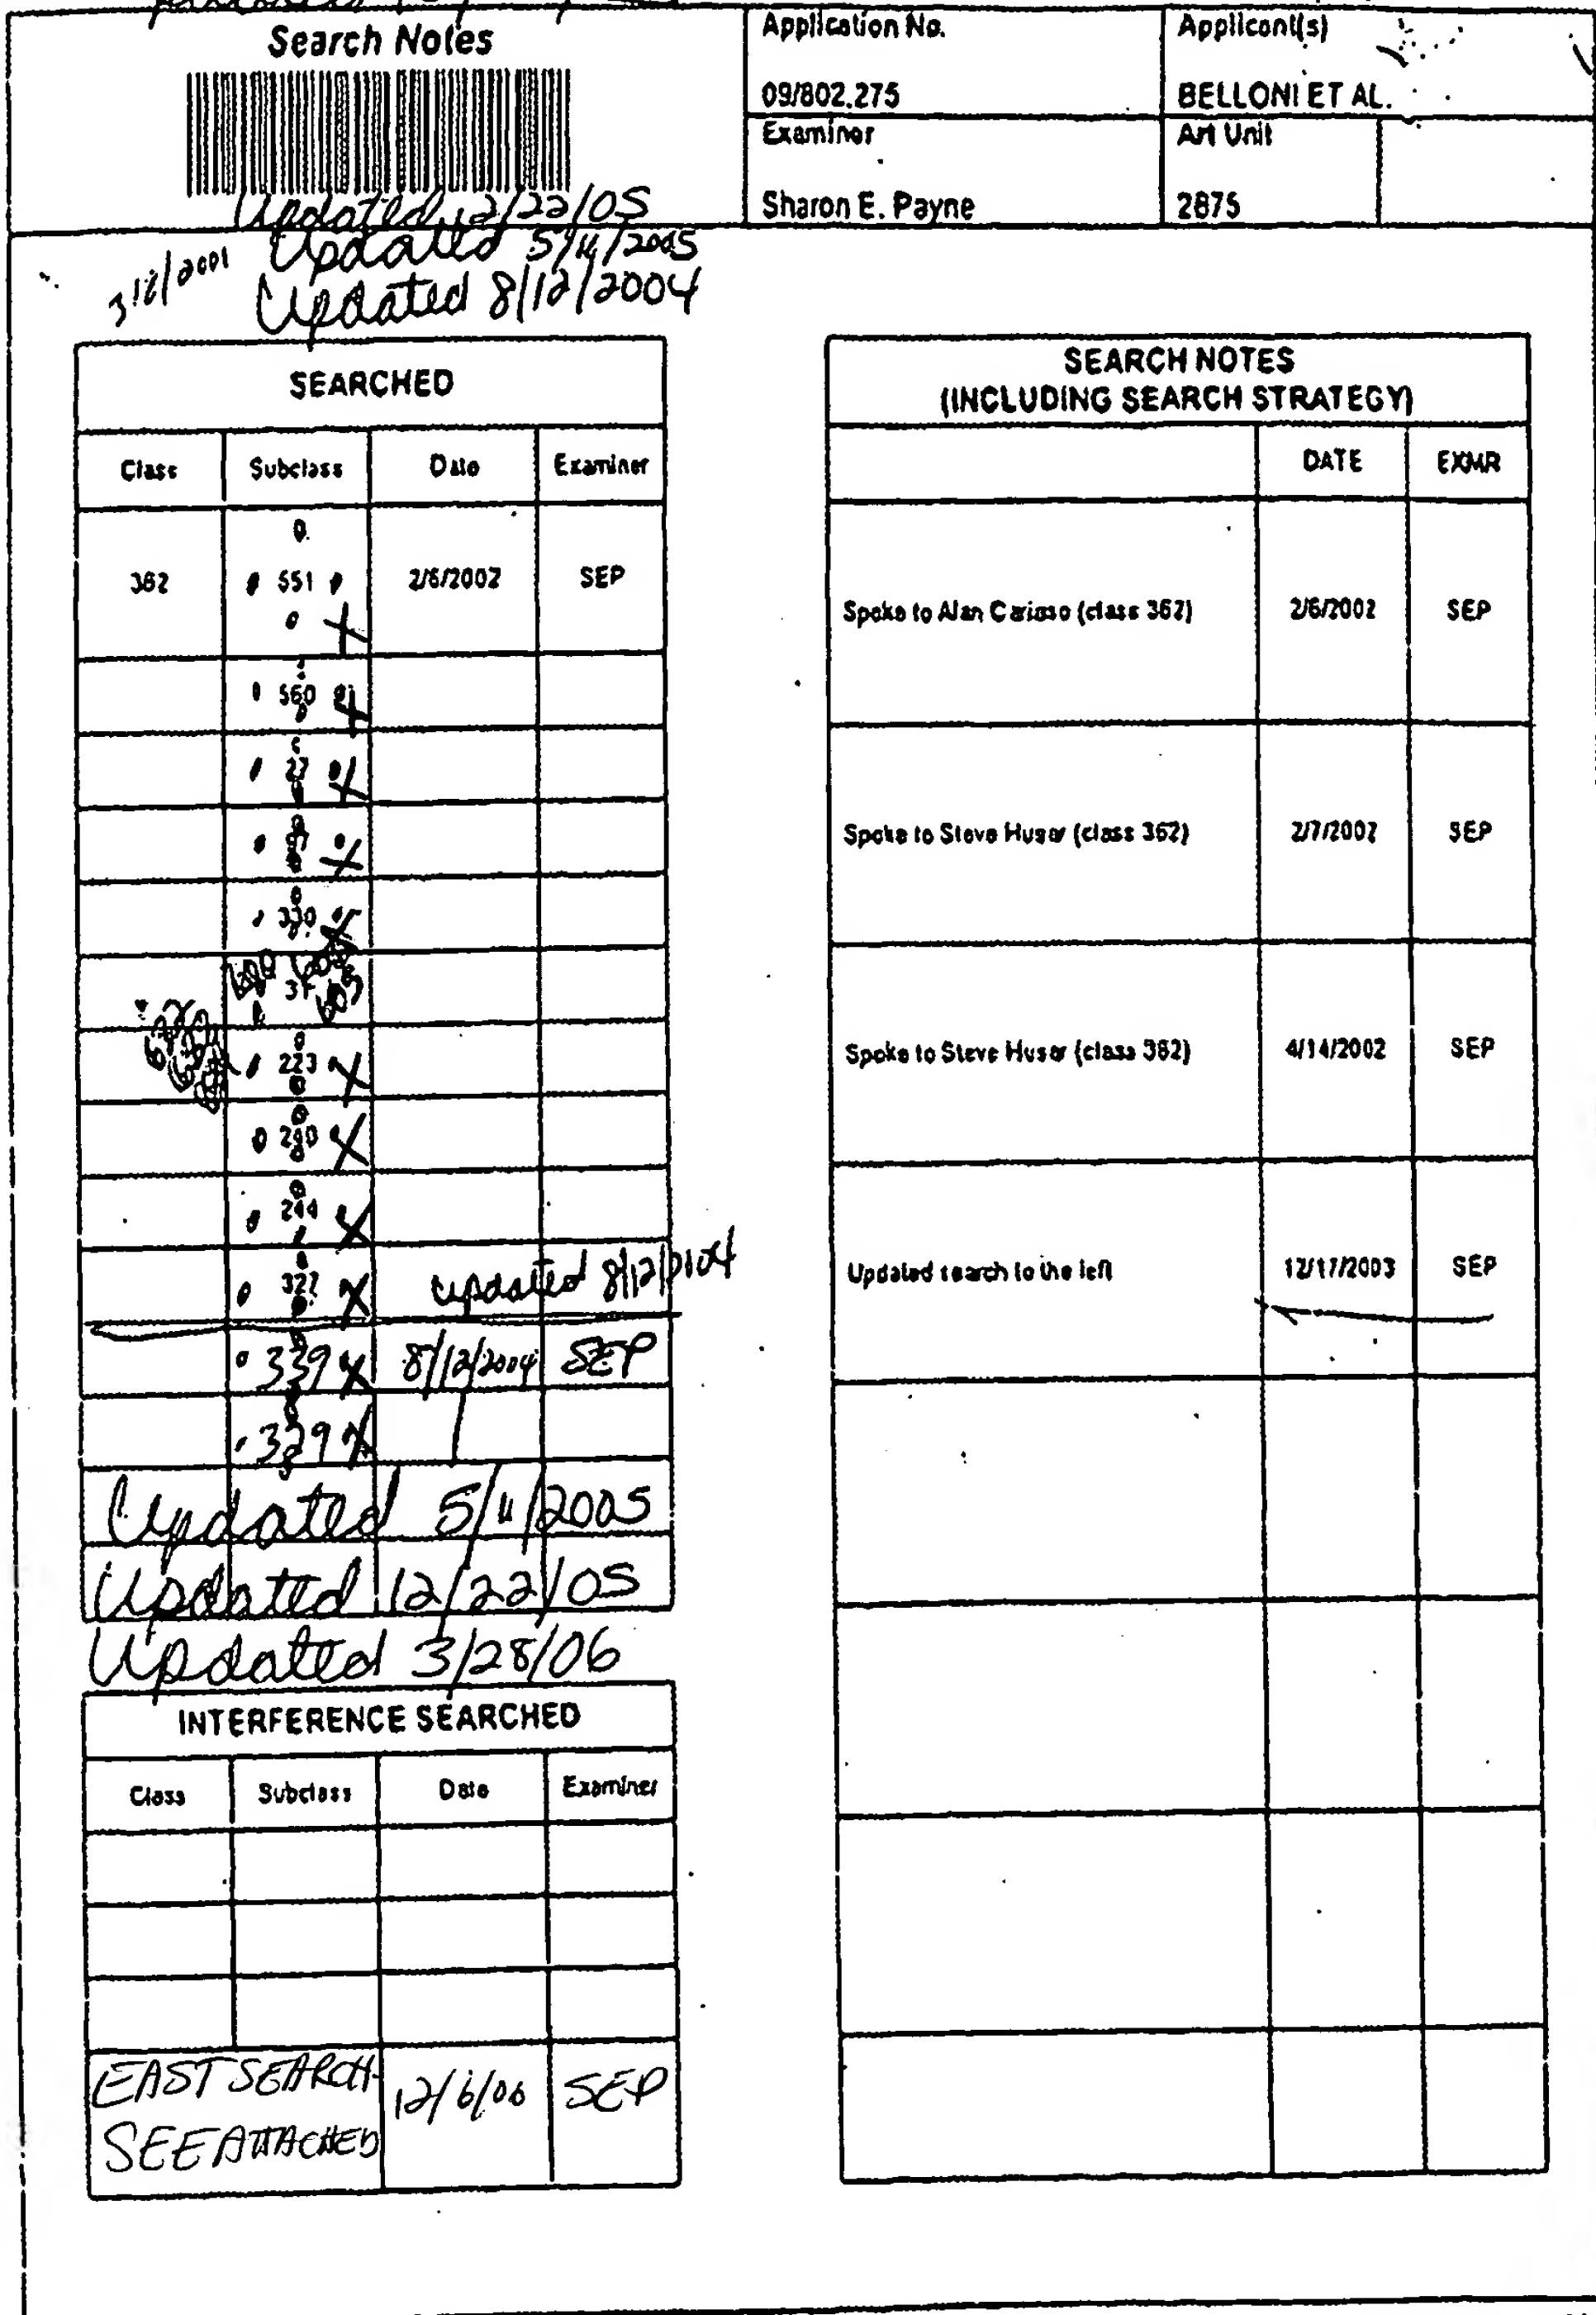 Search Notes
Application No.
Applicant(s)
09/802,275
BELLONI ET AL.
Examiner
Art Unit
Sharon E. Payne
2875
Updated 12/22/05
Updated 5/11/2005
Updated 8/12/2004
SEARCHED
Class Subclass Date Examiner
362 551 2/6/2002 SEP
560
27
97
330
31
223
240
244
327 updated 8/12/2004
339 8/12/2004 SEP
329
Updated 5/11/2005
Updated 12/22/05
Updated 3/28/06
INTERFERENCE SEARCHED
Class Subclass Date Examiner
EAST SEARCH 12/6/06 SEP
SEE ATTACHED
SEARCH NOTES
(INCLUDING SEARCH STRATEGY)
DATE EXMR
Spoke to Alan Cariaso (class 362) 2/6/2002 SEP
Spoke to Steve Husar (class 362) 2/7/2002 SEP
Spoke to Steve Husar (class 362) 4/14/2002 SEP
Updated search to the left 12/17/2003 SEP